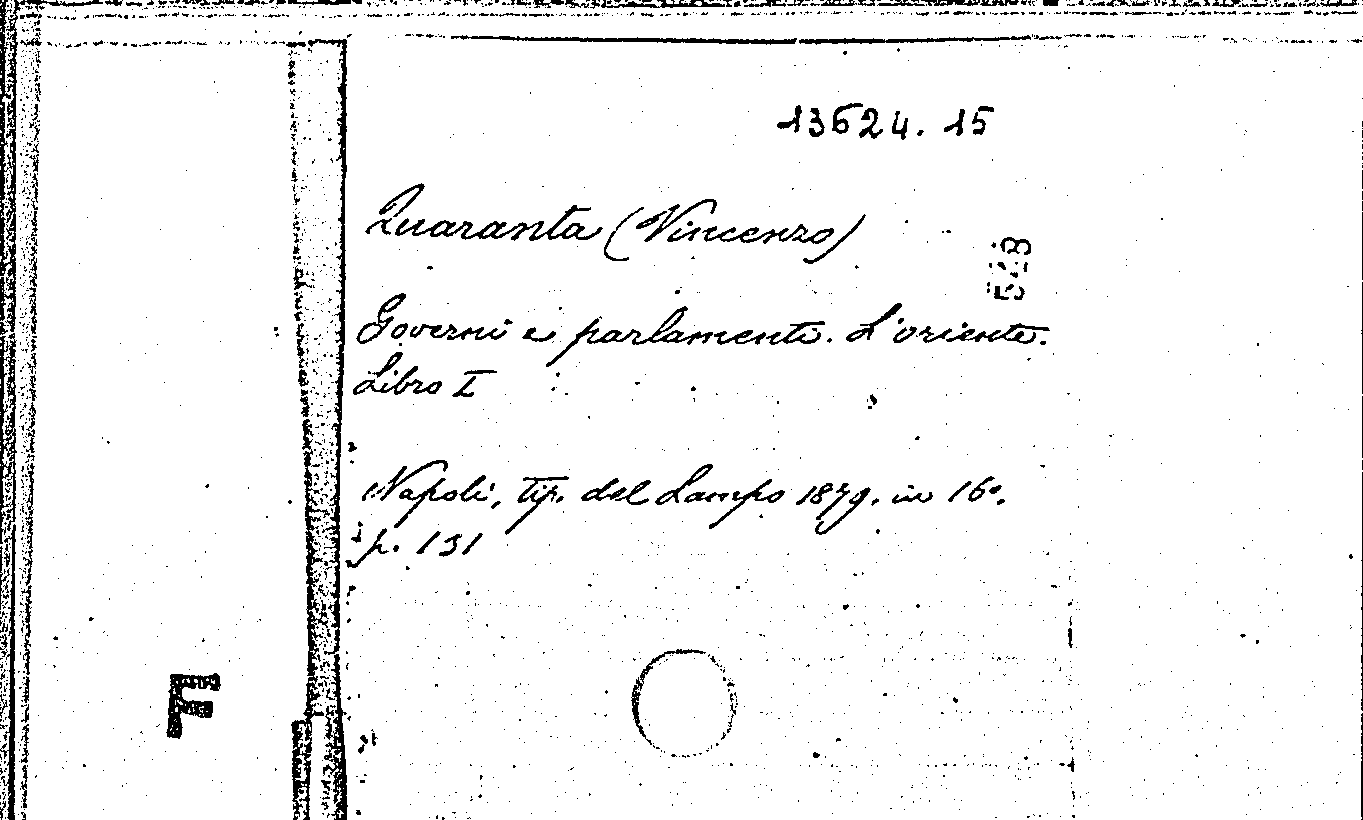 13624.15
Quaranta (Vincenzo)
Governi e parlamenti. L'oriente.
Libro I
Napoli, tip. del Lampo 1879. in 16º.
p. 131
F